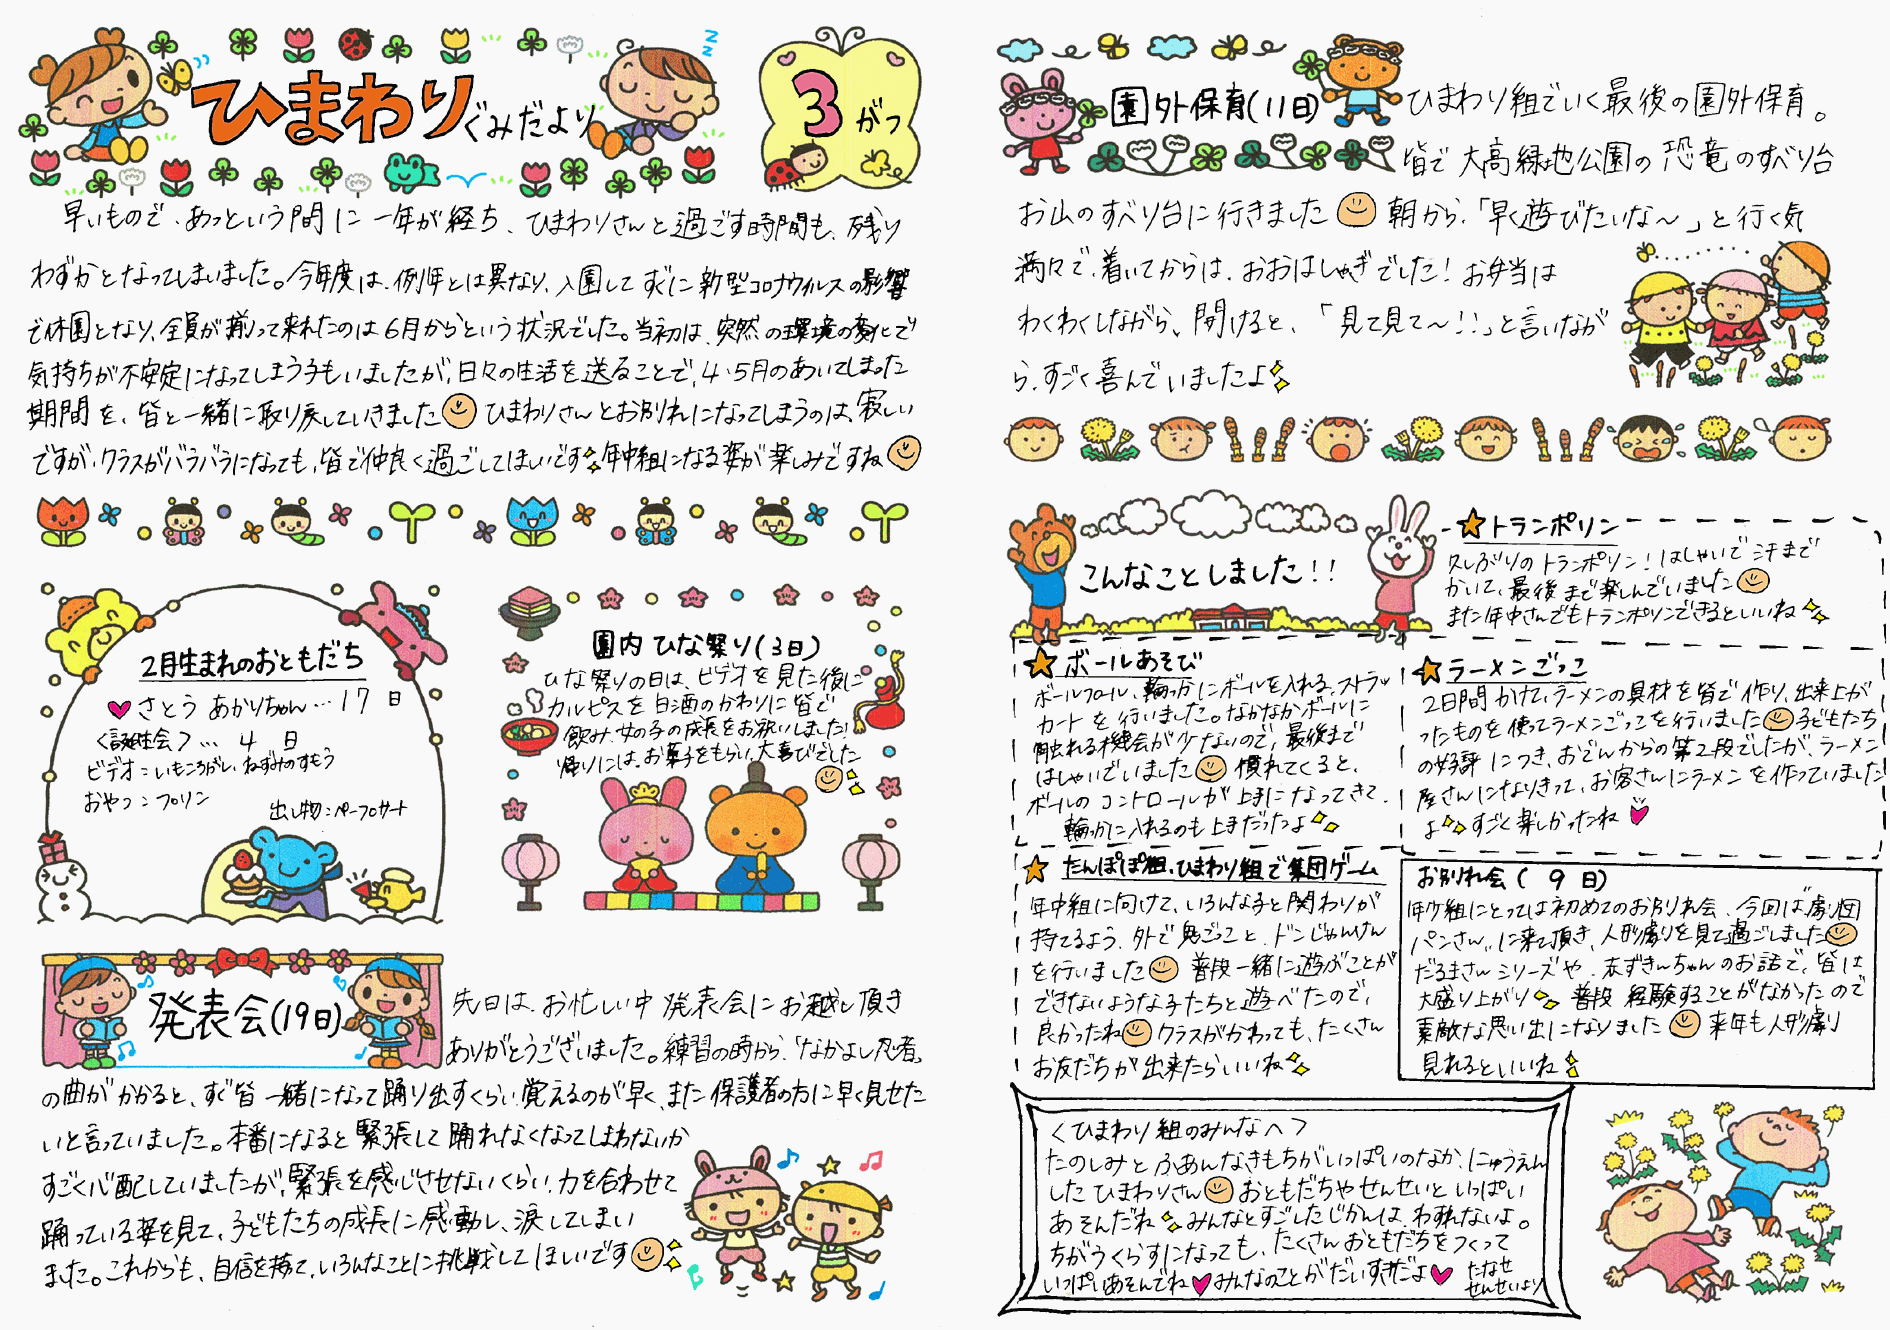 ひまわりぐみだより
3がつ
早いもので、あっという間に一年が経ち、ひまわりさんと過ごす時間も、残り
わずかとなってしまいました。今年度は、例年とは異なり、入園してすぐに新型コロナウィルスの影響
で休園となり、全員が揃って来れたのは6月からという状況でした。当初は、突然の環境の変化で
気持ちが不安定になってしまう子もいましたが、日々の生活を送ることで、4・5月のあいてしまった
期間を、皆と一緒に取り戻していきました ひまわりさんとお別れになってしまうのは、寂しい
ですが、クラスがバラバラになっても、皆で仲良く過ごしてほしいです 年中組になる姿が楽しみですね
2月生まれのおともだち
さとう あかりちゃん…17日
〈誕生会〉…4日
ビデオ:いもころがし、ねずみのすもう
おやつ:プリン
出し物:ペープサート
園内ひな祭り(3日)
ひな祭りの日は、ビデオを見た後に
カルピスを白酒のかわりに皆で
飲み、女の子の成長をお祝いしました!
帰りには、お菓子をもらい、大喜びでした
発表会(19日)
先日は、お忙しい中発表会にお越し頂き
ありがとうございました。練習の時から、「なかよし忍者」
の曲がかかると、すぐ皆一緒になって踊り出すくらい、覚えるのが早く、また保護者の方に早く見せた
いと言っていました。本番になると緊張して踊れなくなってしまわないか
すごく心配していましたが、緊張を感じさせないくらい、力を合わせて
踊っている姿を見て、子どもたちの成長に感動し、涙してしまい
ました。これからも、自信を持って、いろんなことに挑戦してほしいです
園外保育(11日)
ひまわり組でいく最後の園外保育。
皆で大高緑地公園の恐竜のすべり台
お山のすべり台に行きました 朝から、「早く遊びたいな〜」と行く気
満々で、着いてからは、おおはしゃぎでした!お弁当は
わくわくしながら、開けると、「見て見て〜!!」と言いなが
ら、すごく喜んでいましたよ
こんなことしました!!
トランポリン
久しぶりのトランポリン!はしゃいで汗まで
かいて、最後まで楽しんでいました
また年中さんでもトランポリンできるといいね
ボールあそび
ボールプール、輪っかにボールを入れる、ストラッ
カートを行いました。なかなかボールに
触れる機会が少ないので、最後まで
はしゃいでいました 慣れてくると、
ボールのコントロールが上手になってきて、
輪っかに入れるのも上手だったよ
ラーメンごっこ
2日間かけて、ラーメンの具材を皆で作り、出来上が
ったものを使ってラーメンごっこを行いました 子どもたち
の好評につき、おでんからの第2段でしたが、ラーメン
屋さんになりきって、お客さんにラーメンを作っていました
よ すごく楽しかったね
たんぽぽ組、ひまわり組で集団ゲーム
年中組に向けて、いろんな子と関わりが
持てるよう、外で鬼ごっこと、ドンじゃんけん
を行いました 普段一緒に遊ぶことが
できないような子たちと遊べたので、
良かったね クラスがかわっても、たくさん
お友だちが出来たらいいね
お別れ会(9日)
年少組にとっては初めてのお別れ会、今回は“劇団
パンさん”に来て頂き、人形劇を見て過ごしました
だるまさんシリーズや、赤ずきんちゃんのお話で、皆は
大盛り上がり 普段経験することがなかったので
素敵な思い出になりました 来年も人形劇
見れるといいね
〈ひまわり組のみんなへ〉
たのしみとふあんなきもちがいっぱいのなか、にゅうえん
したひまわりさん おともだちやせんせいといっぱい
あそんだね みんなとすごしたじかんは、わすれないよ。
ちがうくらすになっても、たくさんおともだちをつくって
いっぱいあそんでね みんなのことがだいすきだよ
たなせ
せんせいより